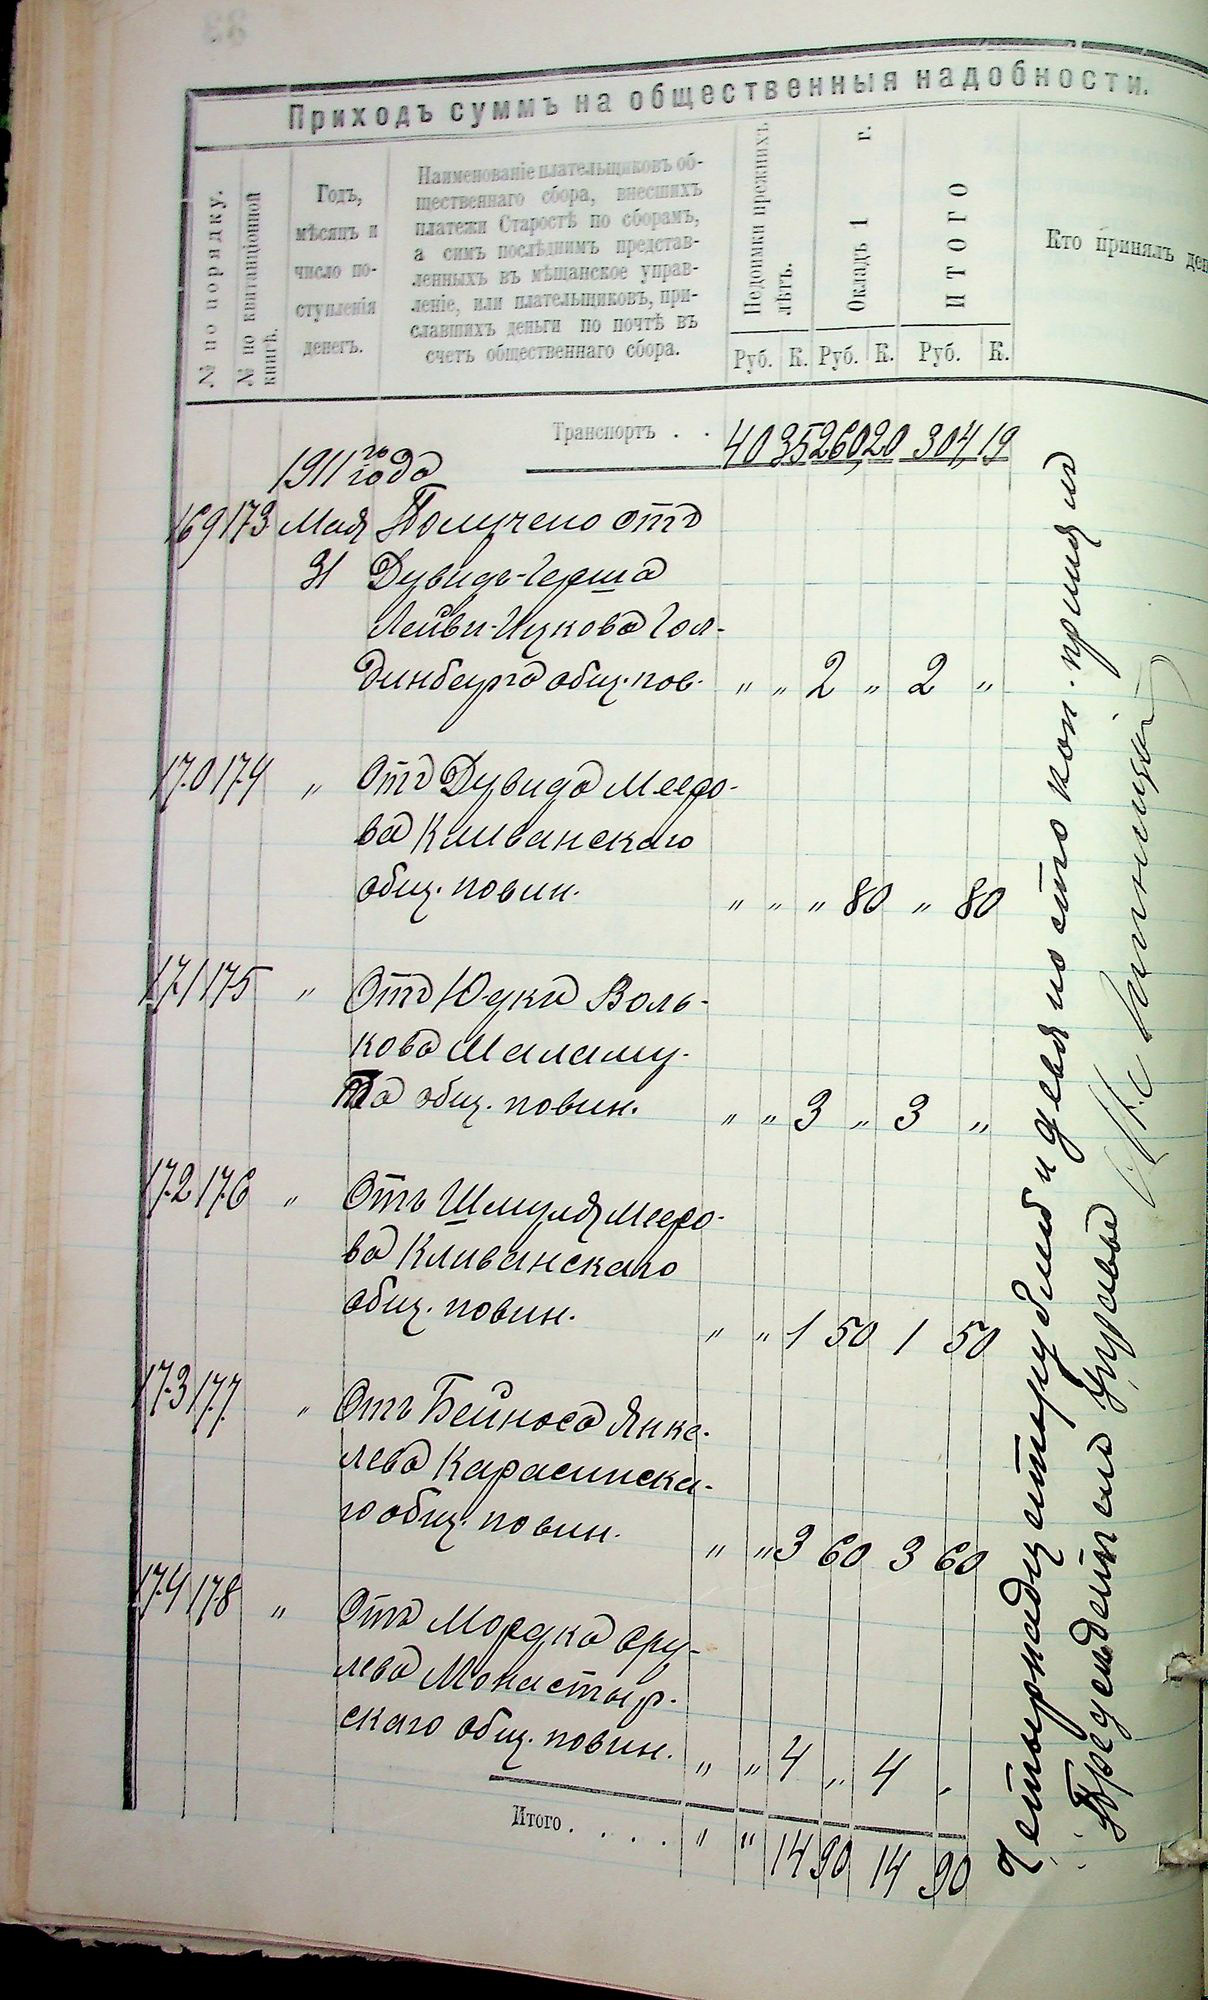 Приходъ суммъ на общественныя надобности.
№ по порядку.
№ по квитанціонной
книгѣ.
Годъ,
мѣсяцъ и
число по-
ступленія
денегъ.
Наименованіе плательщиковъ об-
щественнаго сбора, внесшихъ
платежи Старостѣ по сборамъ,
а симъ послѣднимъ представ-
ленныхъ въ мѣщанское управ-
леніе, или плательщиковъ, при-
славшихъ деньги по почтѣ въ
счетъ общественнаго сбора.
Недоимки прежнихъ
лѣтъ.
Окладъ 1 г.
ИТОГО
Кто принялъ ден
Руб. К. Руб. К. Руб. К.
Транспортъ . . 40 35 260,20 304,19
1911 го года
169 173 Мая Получено отъ
31 Дувидъ-Герша
Лейви-Ицкова Гол-
динберга общ. пов. " " 2 " 2 "
170 174 " Отъ Дувида Мееро-
ва Кливанскаго
общ. повин. " " " 80 " 80
171 175 " Отъ Юдки Воль-
кова Шаламу-
та общ. повин. " " 3 " 3 "
172 176 " Отъ Шмуля Мееро-
ва Кливанскаго
общ. повин. " " 1 50 1 50
173 177 " Отъ Бейноса Янке-
лева Карасинска-
го общ. повин. " " 3 60 3 60
174 178 " Отъ Мордка Сру-
лева Монастыр-
скаго общ. повин. " " 4 " 4 "
Итого . . . . " " 14 90 14 90
Четырнадцать рублей и девяносто коп. принялъ
Предсѣдатель Управы